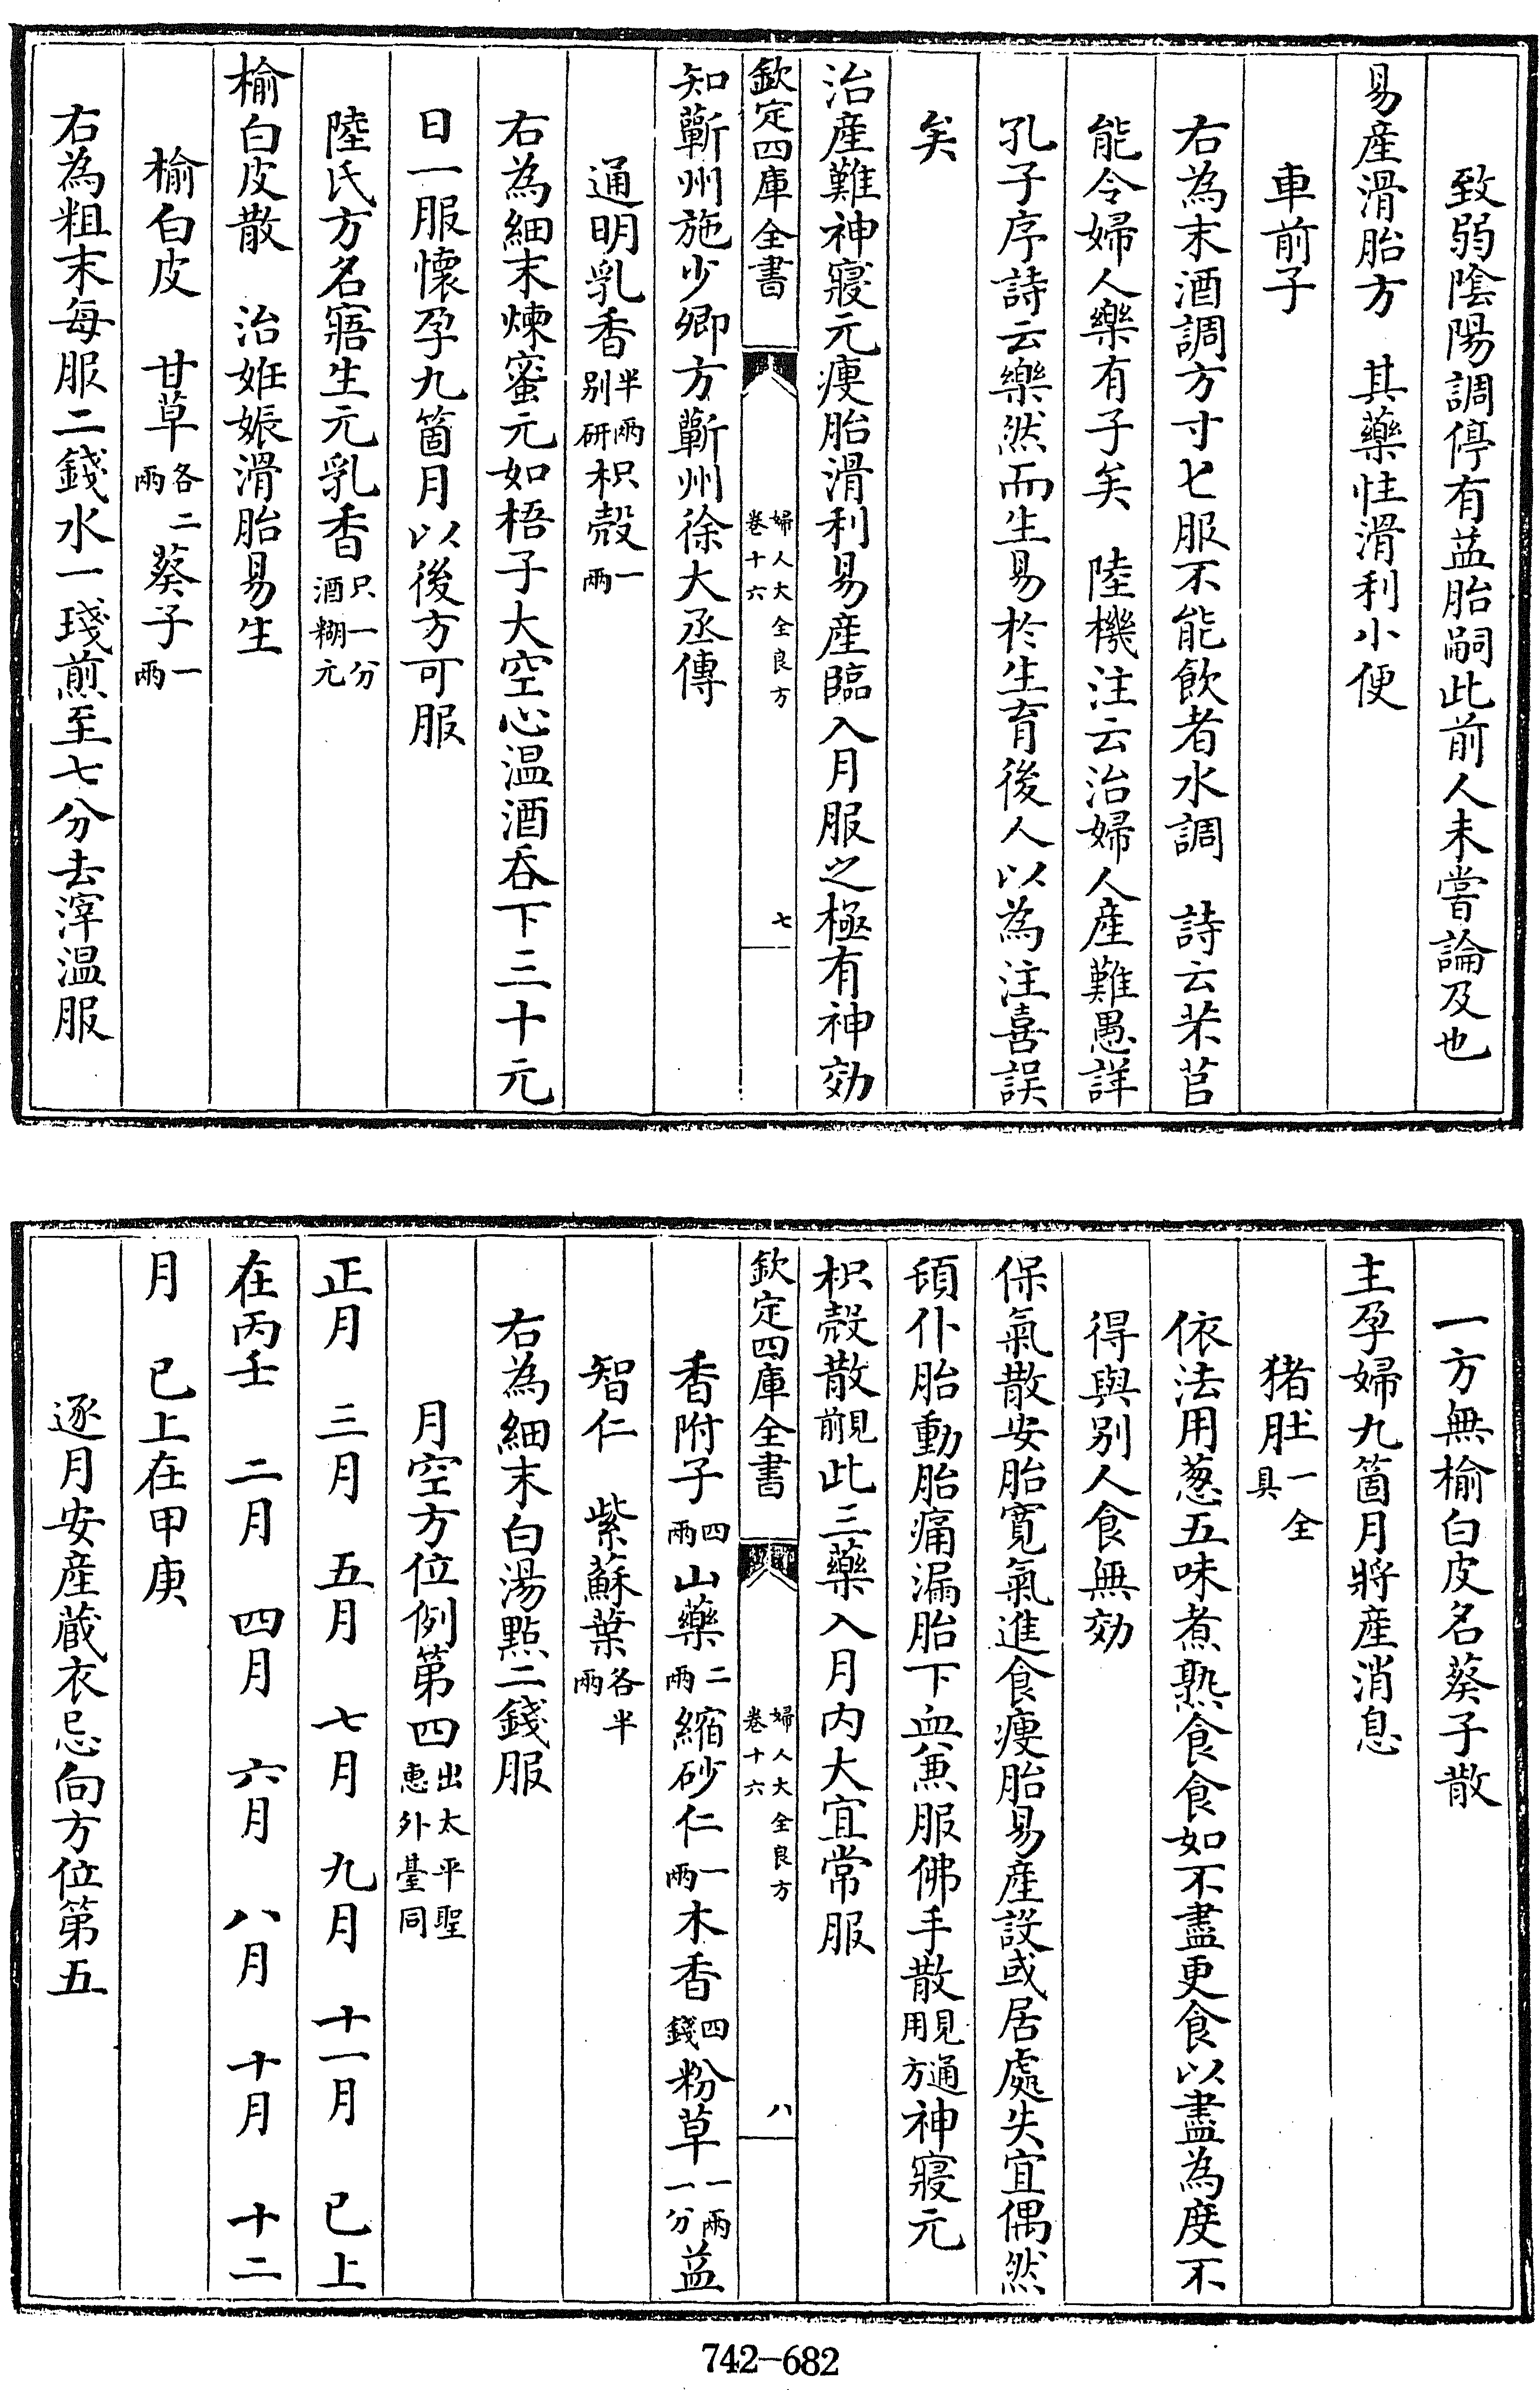 致弱陰陽調停有益胎嗣此前人未嘗論及也
易産滑胎方　其藥性滑利小便
車前子
右為末酒調方寸匕服不能飲者水調　詩云芣苢
能令婦人樂有子矣　陸機注云治婦人産難愚詳
孔子序詩云樂然而生易於生育後人以為注喜誤
矣
治産難神寢元瘦胎滑利易産臨入月服之極有神効
欽定四庫全書
婦人大全良方
卷十六
七
知蘄州施少卿方蘄州徐大丞傳
通明乳香半兩别研枳殻一兩
右為細末煉蜜元如梧子大空心温酒吞下三十元
日一服懷孕九箇月以後方可服
陸氏方名寤生元乳香只一分酒糊元
榆白皮散　治姙娠滑胎易生
榆白皮　甘草各二兩葵子一兩
右為粗末每服二錢水一琖煎至七分去滓温服
一方無榆白皮名葵子散
主孕婦九箇月將産消息
猪肚一全具
依法用葱五味煮熟食食如不盡更食以盡為度不
得與别人食無効
保氣散安胎寛氣進食瘦胎易産設或居處失宜偶然
頓仆胎動胎痛漏胎下血兼服佛手散見通用方神寢元
枳殻散見前此三藥入月内大宜常服
欽定四庫全書
婦人大全良方
卷十六
八
香附子四兩山藥二兩縮砂仁一兩木香四錢粉草一兩一分益
智仁　紫蘇葉各半兩
右為細末白湯點二錢服
月空方位例第四出太平聖惠外臺同
正月　三月　五月　七月　九月　十一月　已上
在丙壬　二月　四月　六月　八月　十月　十二
月　已上在甲庚
逐月安産藏衣忌向方位第五
742-682